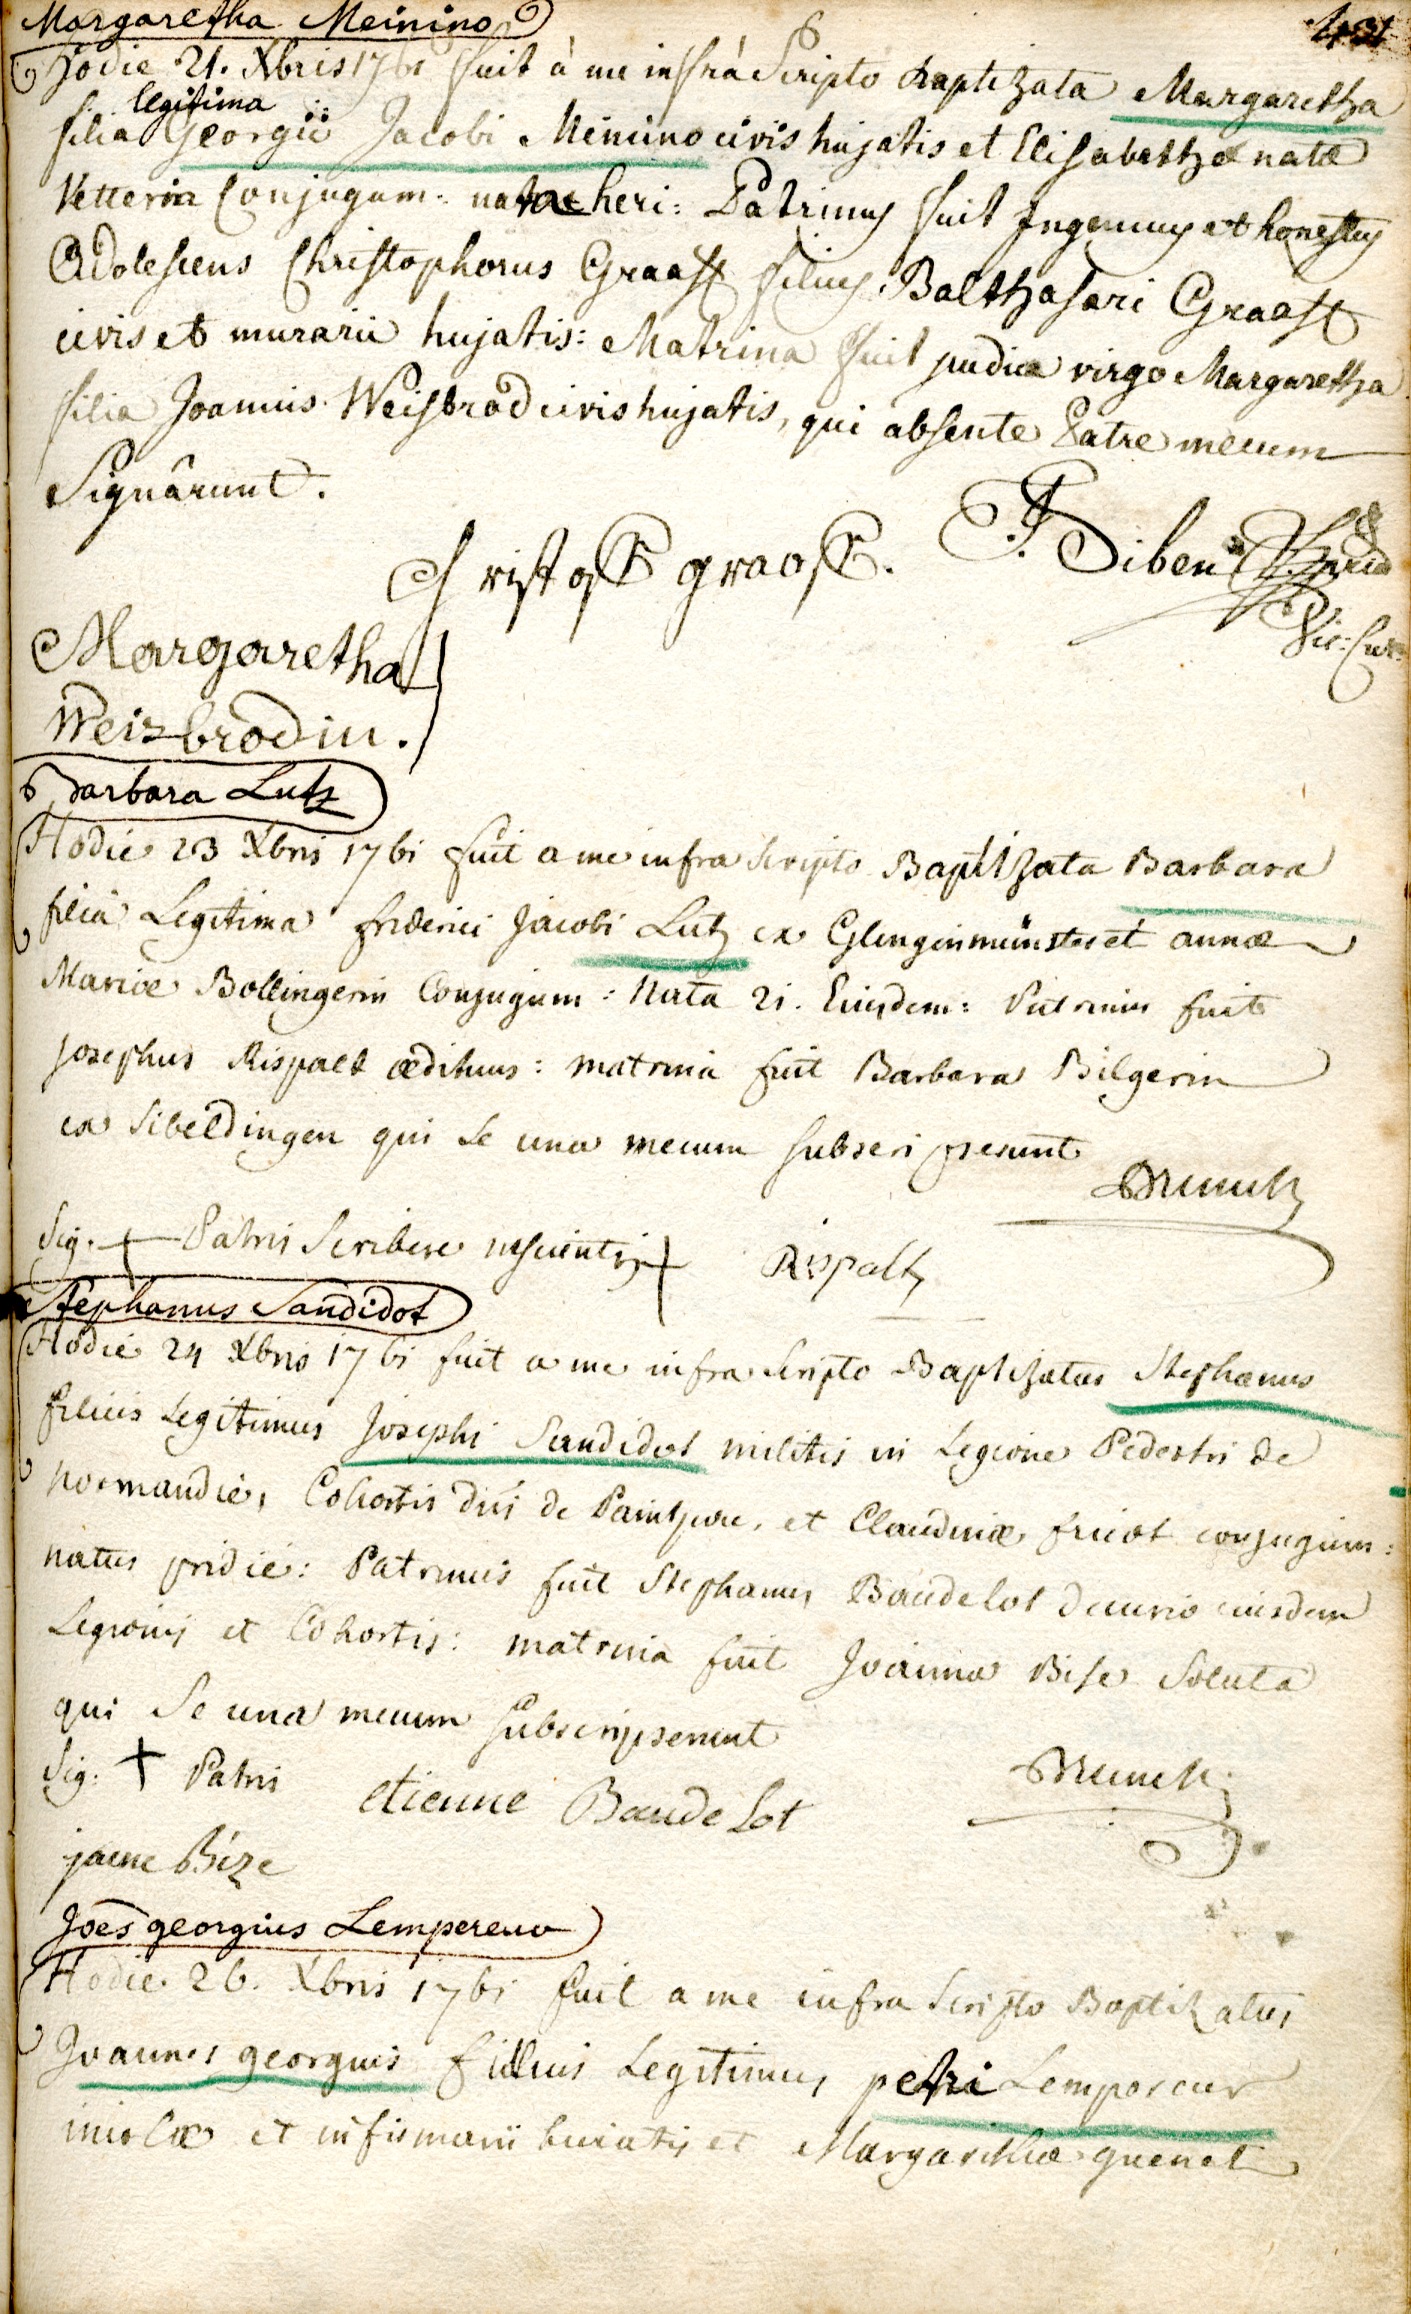 Margaretha Meinino
431
Hodie 21. Xbris 1761 fuit à me infrá Scripto Baptizata Margaretha
legitima
filia Georgii Jacobi Meinino civis hujatis et Elisabethæ natæ
Vetterin Conjugum: natæ heri: Patrinus fuit Ingenuus et honestus
Adolescens Christophorus Graaff filius Balthasari Graaff
civis et murarii hujatis: Matrina fuit pudica virgo Margaretha
filia Joannis Weisbrod civis hujatis, qui absente Patre mecum
Signârunt.
Cristoff graaff.
Vic: Cur:
Margaretha
Weisbrodin.
Barbara Lutz
Hodie 23 Xbris 1761 fuit a me infra scripto Baptizata Barbara
filia Legitima friderici Jacobi Lutz ex Glingenmünster et annæ
Mariæ Bollingerin Conjugum: Nata 21. Eiusdem: Patrinus fuit
Josephus Rispalt ædituus: matrina fuit Barbara Bilgerin
ex Sibeldingen qui se una mecum subscripserunt
Brunck
Sig. + Patris Scribere nescientis + Rispalt
Stephanus Sandidot
Hodie 24 Xbris 1761 fuit a me infra Scripto Baptizatus Stephanus
filius Legitimus Josephi Sandidot militis in Legione Pedestri de
Normandie, Cohortis Dni de et Claudinæ fricot conjugum:
natus pridie: Patrinus fuit Stephanus Baudelot decurio eiusdem
Legionis et Cohortis: matrina fuit Joanna Bise Soluta
qui Se una mecum Subscripserunt
Sig: + Patris etienne Baudelot Brunck
jaene Bize
Joēs georgius Lempereur
Hodie 26. Xbris 1761 fuit a me infra Scripto Baptizatus
Joannes georgius filius Legitimus petri Lempereur
incolæ et infirmarii huiatis et Margarithæ guenet